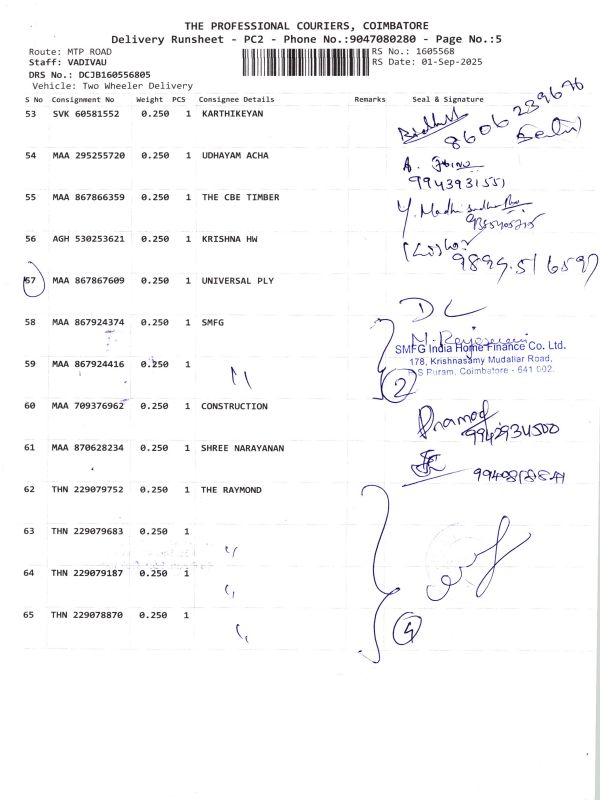 THE PROFESSIONAL COURIERS, COIMBATORE
Delivery Runsheet - PC2 - Phone No.:9047080280 - Page No.:5
Route: MTP ROAD RS No.: 1605568
Staff: VADIVAU RS Date: 01-Sep-2025
DRS No.: DCJB160556805
Vehicle: Two Wheeler Delivery
S No Consignment No Weight PCS Consignee Details Remarks Seal & Signature
53 SVK 60581552 0.250 1 KARTHIKEYAN
8606239676
54 MAA 295255720 0.250 1 UDHAYAM ACHA
9943931551
55 MAA 867866359 0.250 1 THE CBE TIMBER
56 AGH 530253621 0.250 1 KRISHNA HW
57 MAA 867867609 0.250 1 UNIVERSAL PLY
DL
58 MAA 867924374 0.250 1 SMFG
SMFG India Home Finance Co. Ltd.
178, Krishnasamy Mudaliar Road,
R.S Puram, Coimbatore - 641 002.
59 MAA 867924416 0.250 1 "
2
60 MAA 709376962 0.250 1 CONSTRUCTION
Pramod
9942934500
61 MAA 870628234 0.250 1 SHREE NARAYANAN
62 THN 229079752 0.250 1 THE RAYMOND
63 THN 229079683 0.250 1 "
64 THN 229079187 0.250 1 "
65 THN 229078870 0.250 1 "
4